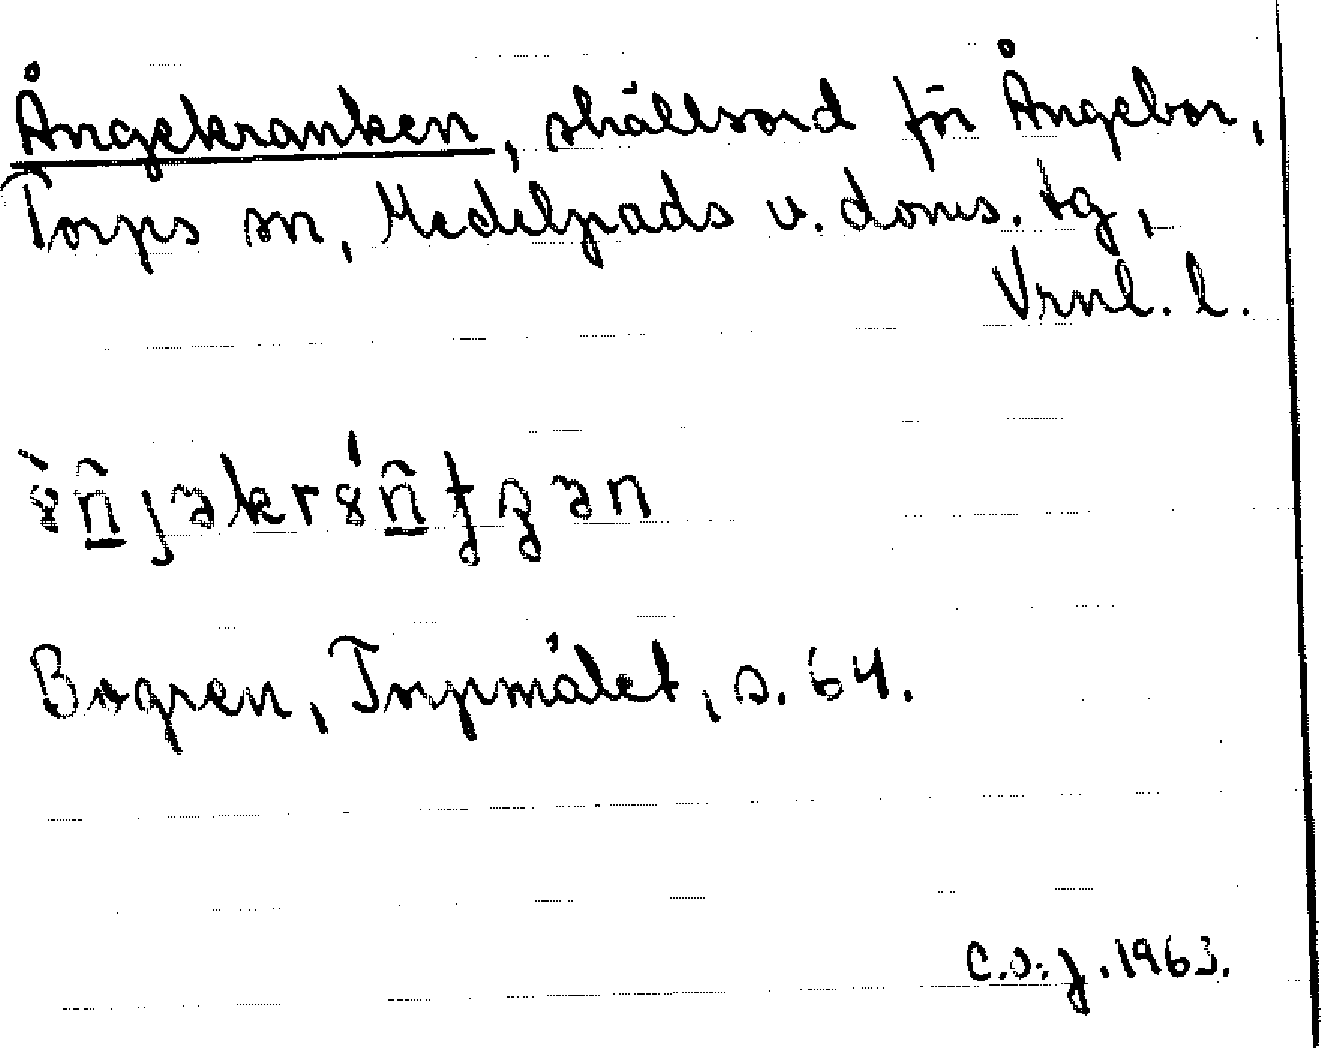 Ångekranken, skällsord för Ångebor,
Torps sn, Medelpads v. doms. tg,
Vrnl. l.
Bogren, Torpmålet, s. 64.
C.O.J. 1963.